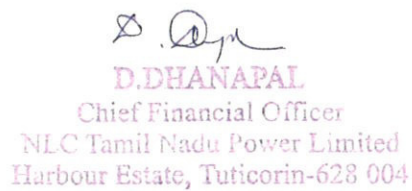 D.DHANAPAL
Chief Financial Officer
NLC Tamil Nadu Power Limited
Harbour Estate, Tuticorin-628 004